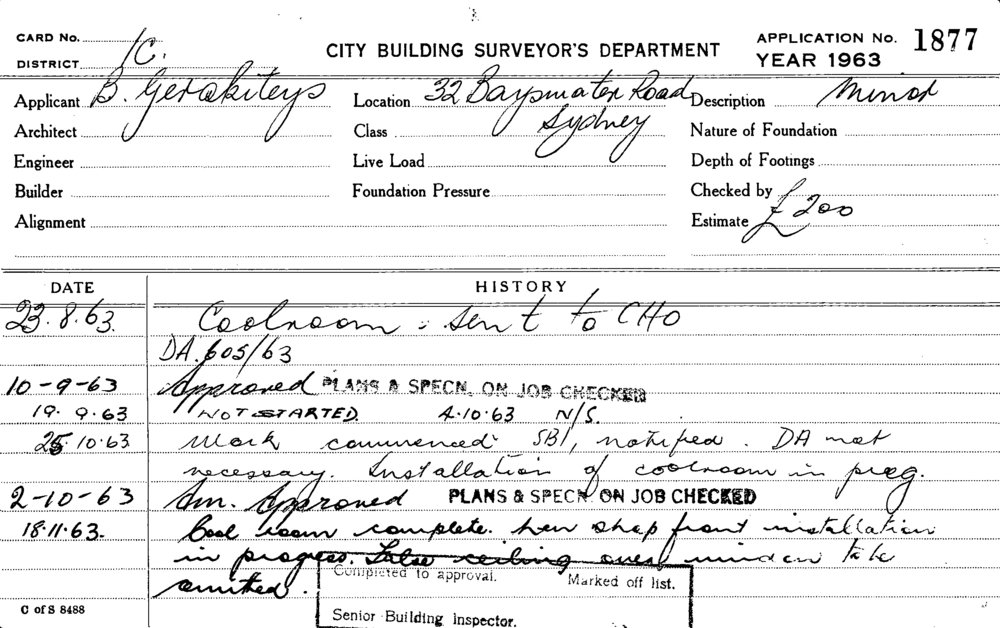 CARD No.
DISTRICT 1C.
CITY BUILDING SURVEYOR'S DEPARTMENT
APPLICATION No. 1877
YEAR 1963
Applicant B. Gerakiteys
Location 32 Bayswater Road
Sydney
Description Minor
Architect
Class
Nature of Foundation
Engineer
Live Load
Depth of Footings
Builder
Foundation Pressure
Checked by
Alignment
Estimate £200
DATE HISTORY
23.8.63. Coolroom - sent to CHO
DA.605/63
10-9-63 Approved PLANS & SPECN. ON JOB CHECKED
19.9.63 NOT STARTED. 4.10.63 N/S.
25.10.63 Work commenced SBI, notified. DA not
necessary. Installation of coolroom in prog.
2-10-63 Am. Approved PLANS & SPECN ON JOB CHECKED
18.11.63. Cool room complete. New shop front installation
in progress. False ceiling over window to be
omitted.
Completed to approval. Marked off list.
Senior Building Inspector.
C of S 8488